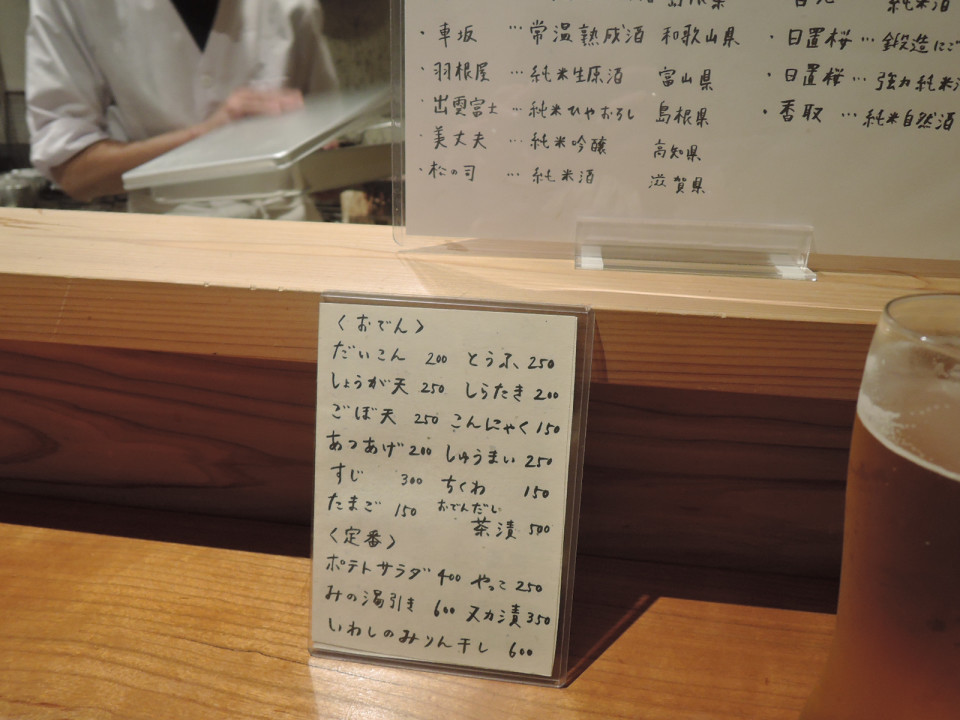 島根県
純米酒
・車坂 … 常温熟成酒 和歌山県
・日置桜 … 鍛造にご
・羽根屋 … 純米生原酒 富山県
・日置桜 … 強力純米
・出雲富士 … 純米ひやおろし 島根県
・香取 … 純米自然酒
・美丈夫 … 純米吟醸 高知県
・松の司 … 純米酒 滋賀県
〈おでん〉
だいこん 200 とうふ 250
しょうが天 250 しらたき 200
ごぼ天 250 こんにゃく 150
あつあげ 200 しゅうまい 250
すじ 300 ちくわ 150
たまご 150 おでんだし
茶漬 500
〈定番〉
ポテトサラダ 400 やっこ 250
みの湯引き 600 ヌカ漬 350
いわしのみりん干し 600